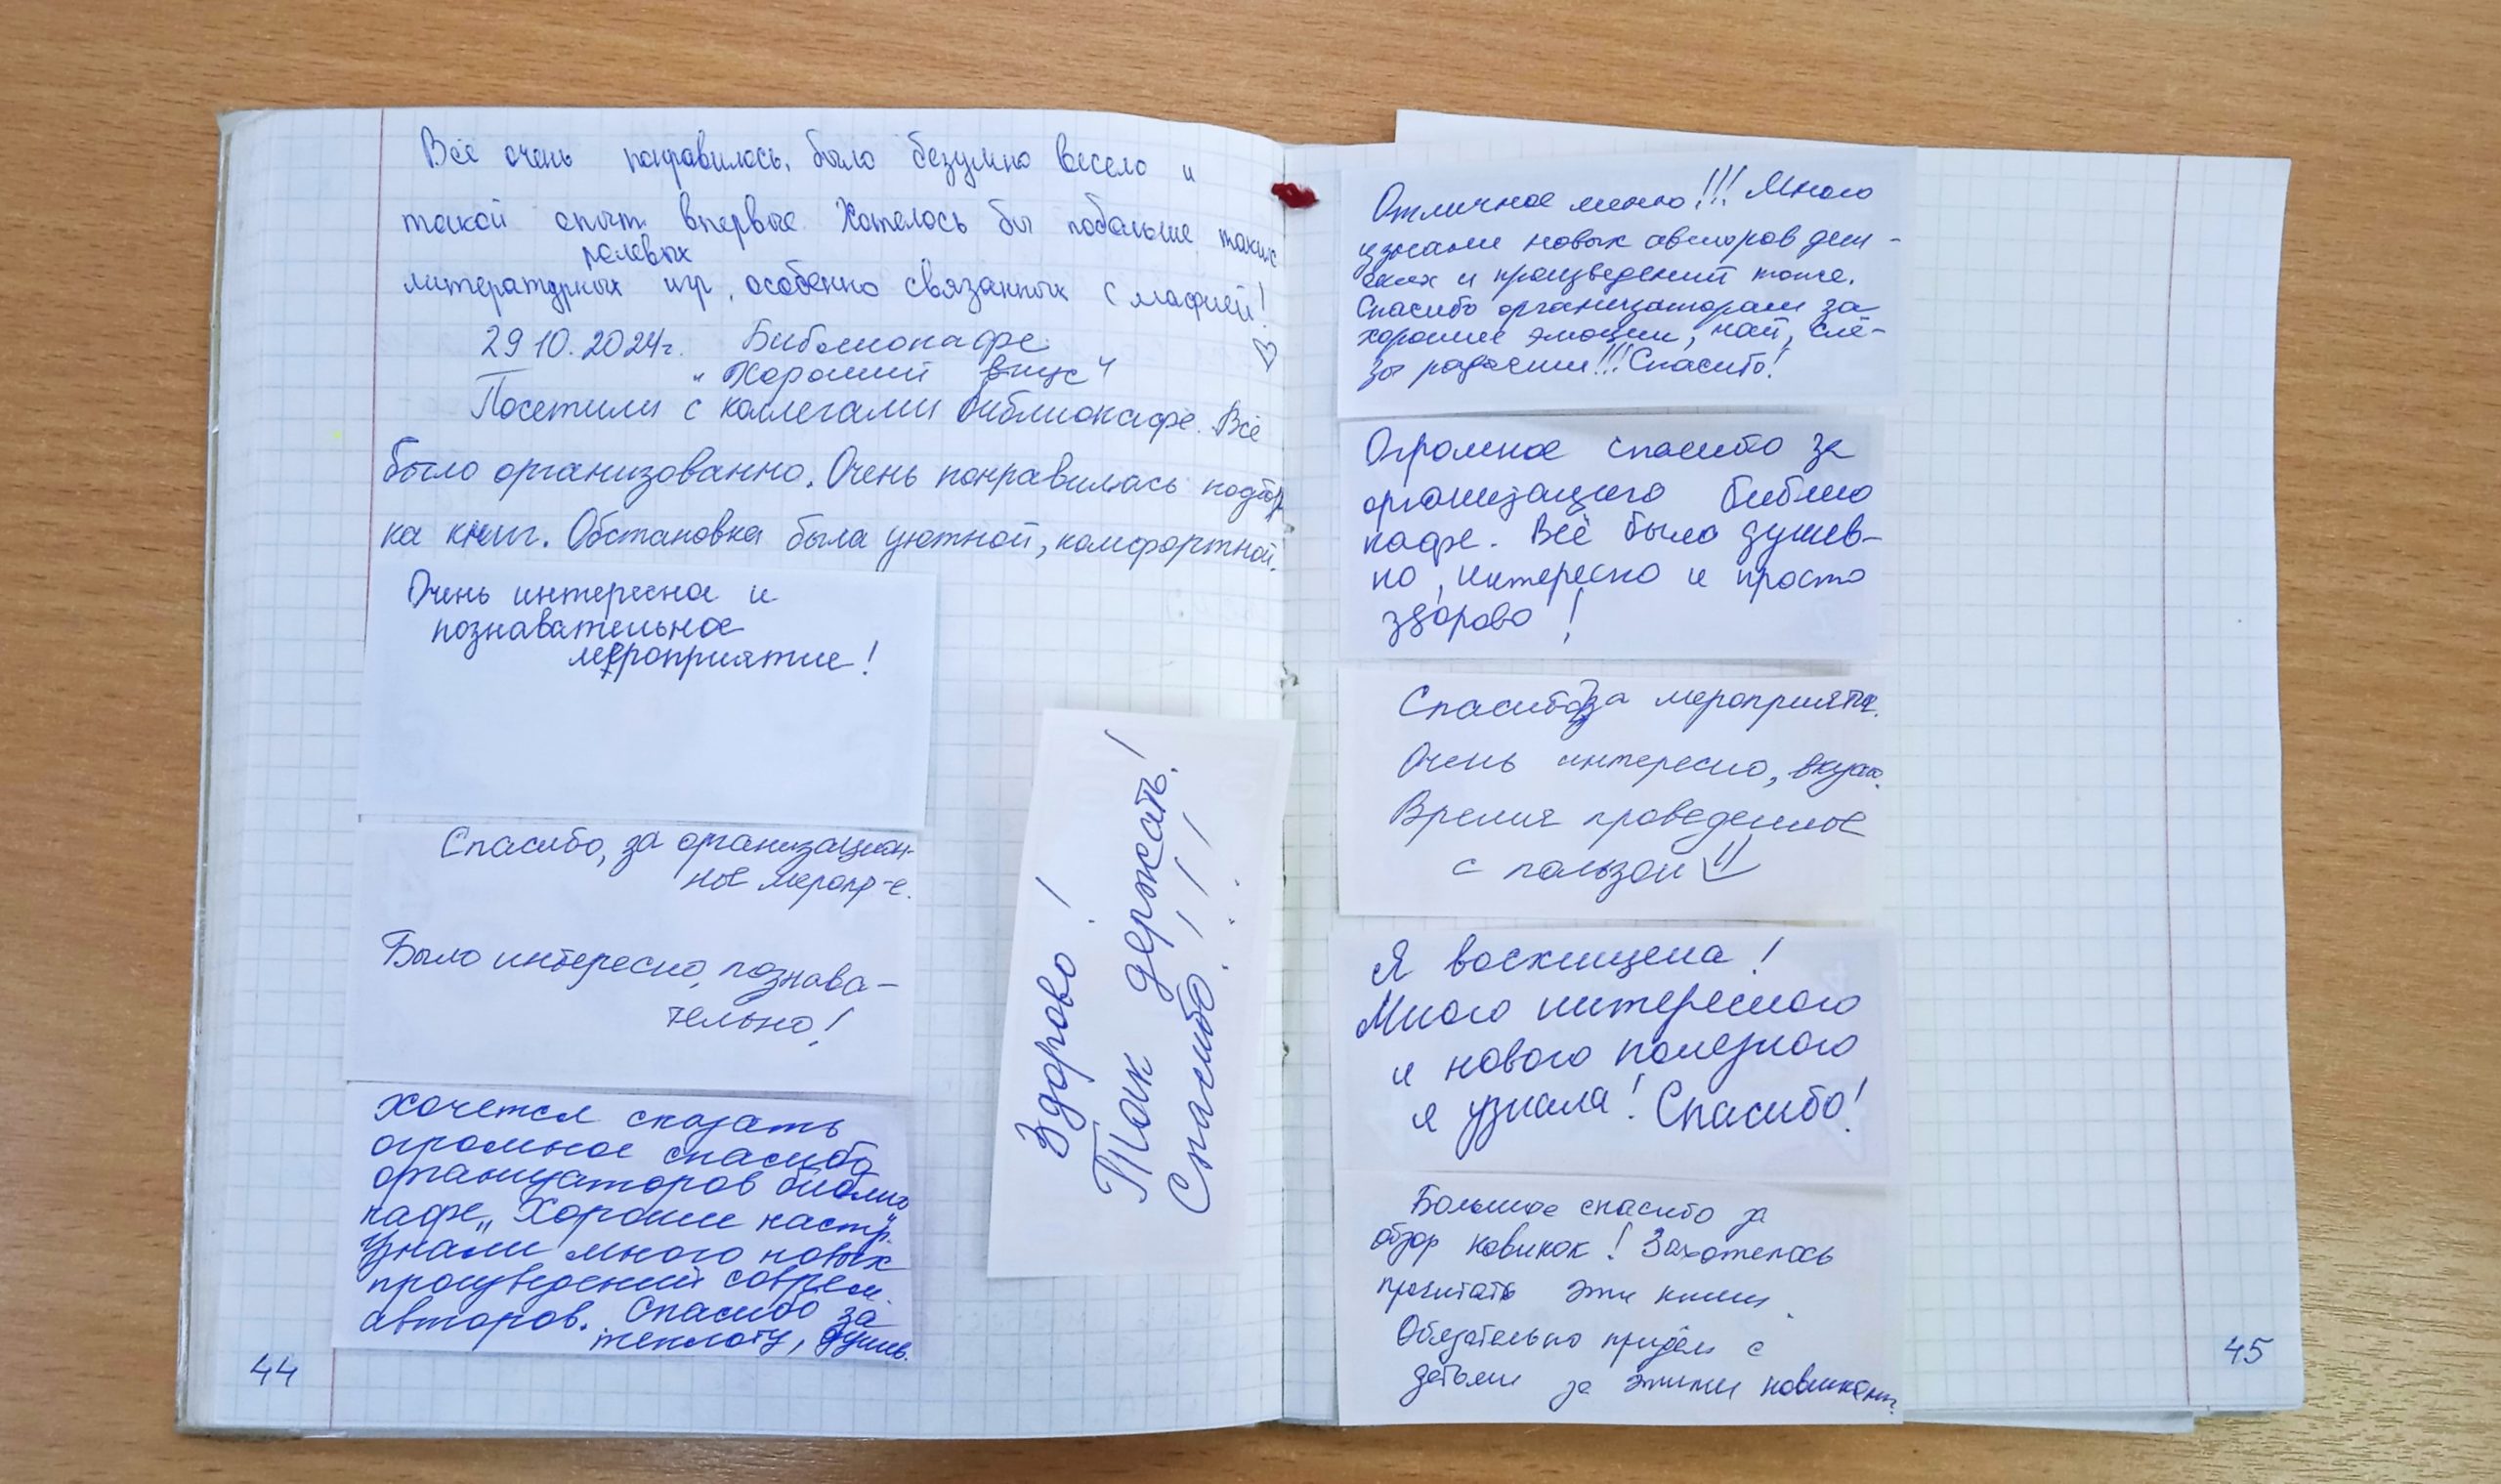 Всё очень понравилось, было безумно весело и
такой опыт впервые. Хотелось бы побольше таких
ролевых
литературных игр, особенно связанных с мафией!
29.10.2024г. Библиокафе
"Хороший вкус"
Посетили с коллегами библиокафе. Всё
было организованно. Очень понравилась подбор
ка книг. Обстановка была уютной, комфортной.
Очень интересное и
познавательное
мероприятие!
Спасибо, за организацион-
ное меропр-е.
Было интересно, познава-
тельно!
Хочется сказать
огромное спасибо
организаторов библио
кафе „Хорошее настр."
Узнали много новых
произведений соврем.
авторов. Спасибо за
теплоту, душев.
44
Здорово!
Так держать!
Спасибо!!!
Отличное меню!!! Много
узнали новых авторов дет-
ских и произведений тоже.
Спасибо организаторам за
хорошие эмоции, чай, слё-
зы радости!!! Спасибо!
Огромное спасибо за
организацию библио
кафе. Всё было душев-
но, интересно и просто
здорово!
Спасибо за мероприятие.
Очень интересно, вкусно.
Время проведенное
с пользой
Я восхищена!
Много интересного
и нового полезного
я узнала! Спасибо!
Большое спасибо за
обзор новинок! Захотелось
прочитать эти книги.
Обязательно придём с
детьми за этими новинками.
45